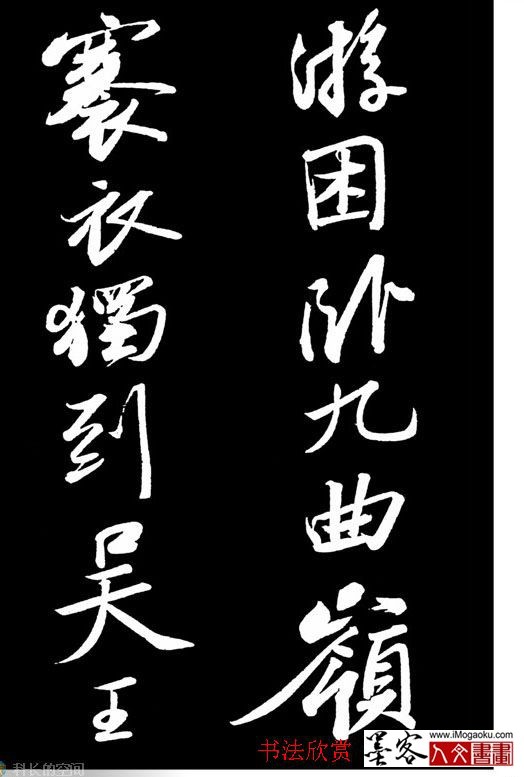 游困卧九曲嶺
褰衣獨到吴王
书法欣赏
墨客
www.iMogaoku.com
人文書畫
科长的空间